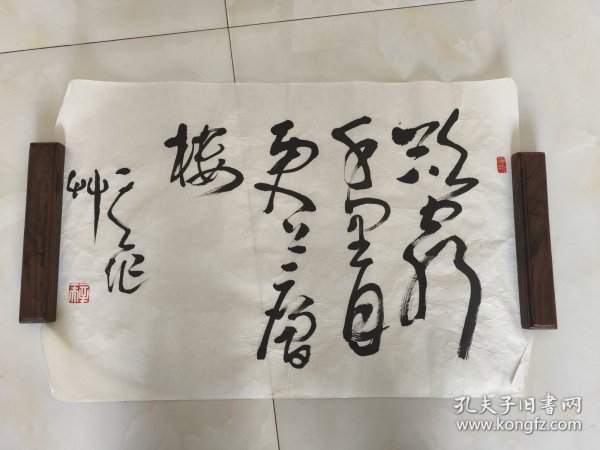 欲穷
千里目
更上一层
楼
孔夫子旧书网
www.kongfz.com